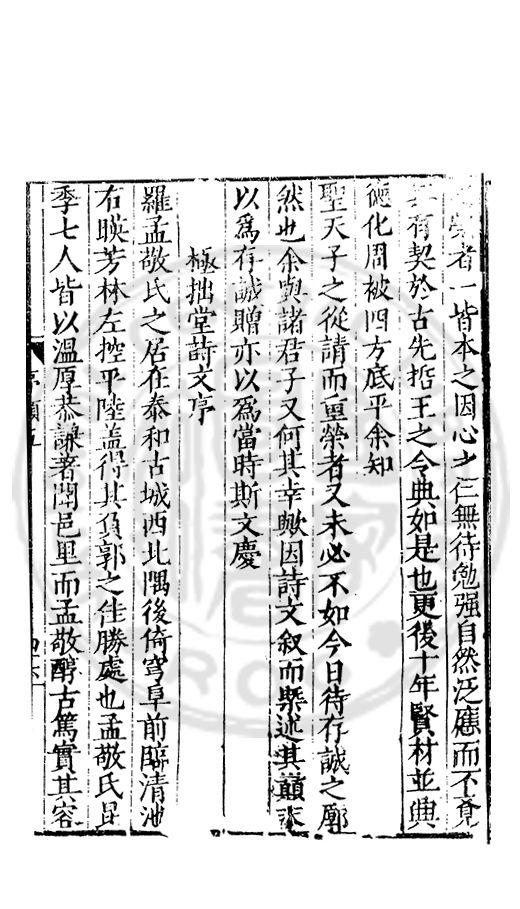 者一皆本之因心之仁無待勉强自然泛應而不
有契於古先哲王之令典如是也更後十年賢材並興
德化周被四方底平余知
聖天子之從請而重榮者又未必不如今日待存誠之廓
然也余與諸君子又何其幸歟因詩文叙而槩述其顛末
以爲存誠贈亦以爲當時斯文慶
極拙堂詩文序
羅孟敬氏之居在泰和古城西北隅後倚穹阜前臨清池
右暎芳林左控平陸盖得其負郭之佳勝處也孟敬氏昆
季七人皆以溫厚恭謙著聞邑里而孟敬醇古篤實其容